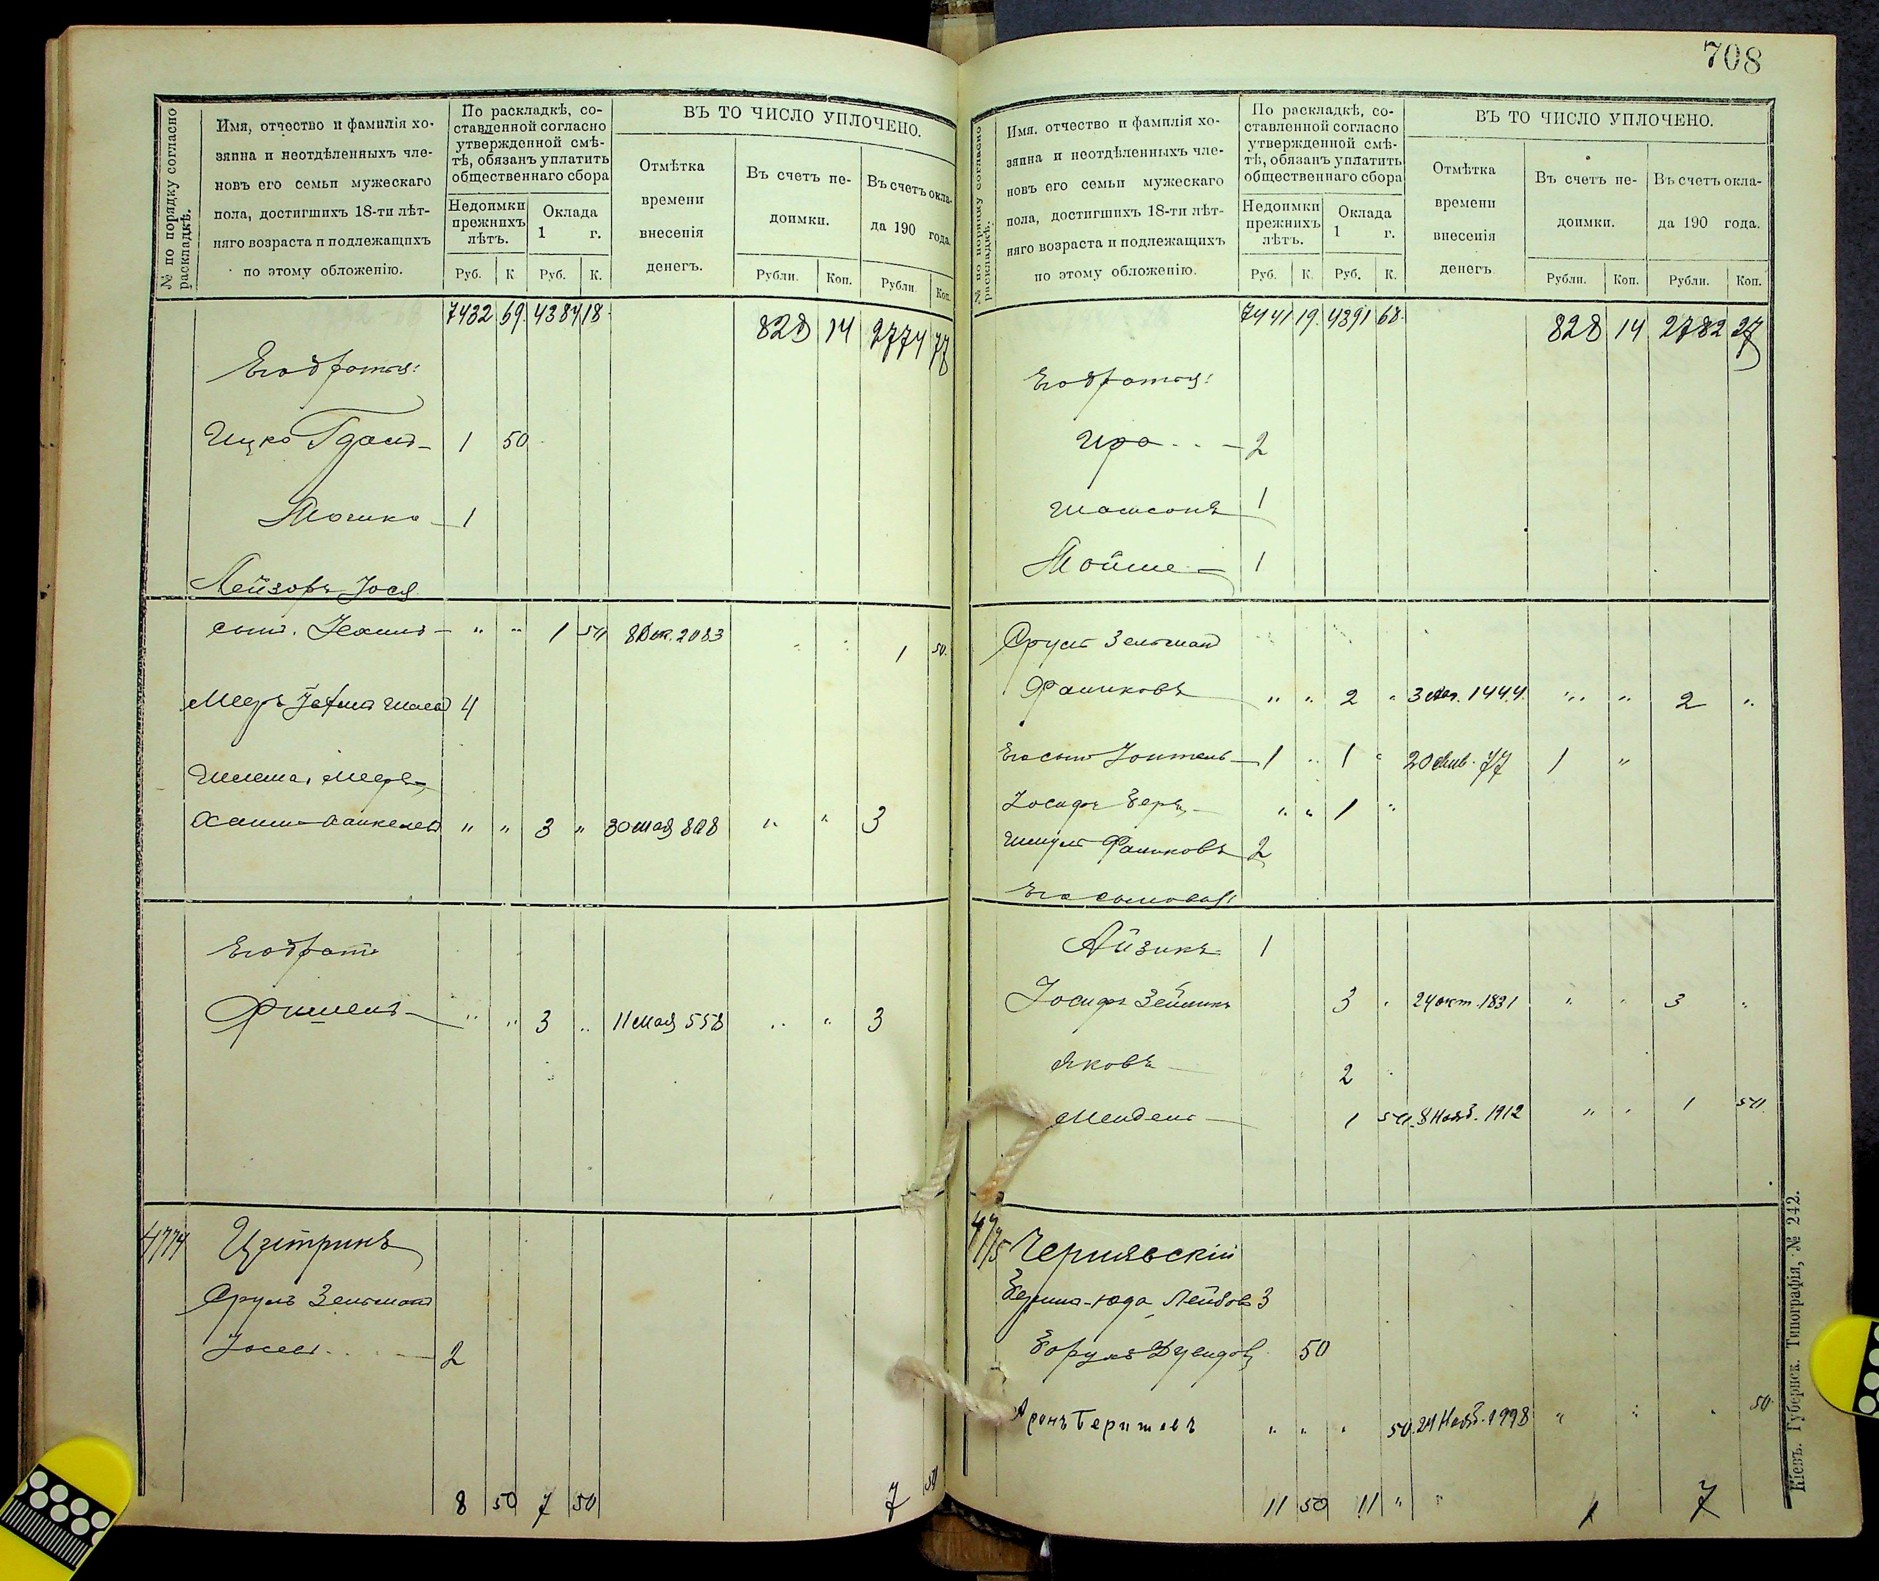 708
№ по порядку согласно раскладкѣ.
Имя, отчество и фамилія хо-
зяина и неотдѣленныхъ чле-
новъ его семьи мужескаго
пола, достигшихъ 18-ти лѣт-
няго возраста и подлежащихъ
по этому обложенію.
По раскладкѣ, со-
ставленной согласно
утвержденной смѣ-
тѣ, обязанъ уплатить
общественнаго сбора
Недоимки
прежнихъ
лѣтъ.
Оклада
1 г.
Руб. К. Руб. К.
ВЪ ТО ЧИСЛО УПЛОЧЕНО.
Отмѣтка
времени
внесенія
денегъ.
Въ счетъ не-
доимки.
Рубли. Коп.
Въ счетъ окла-
да 190 года.
Рубли Коп.
7432 69. 4384 18 828 14 2774 77
Его братья:
Ицко 1 50
Мошко 1
Лейзоръ Іося
сынъ. 1 50 8 Дек. 2083 1 50.
Меръ 4
Хаимъ " " 3 " 30 мая 808 " " 3
Его братъ
Фишель " " 3 " 11 мая 558 " " 3
4774 Цитринъ
Сруль Зельманъ
2
8 50 7 50 7 50
№ по порядку согласно раскладкѣ.
Имя, отчество и фамилія хо-
зяина и неотдѣленныхъ чле-
новъ его семьи мужескаго
пола, достигшихъ 18-ти лѣт-
няго возраста и подлежащихъ
по этому обложенію.
По раскладкѣ, со-
ставленной согласно
утвержденной смѣ-
тѣ, обязанъ уплатить
общественнаго сбора
Недоимки
прежнихъ
лѣтъ.
Оклада
1 г.
Руб. К. Руб. К.
ВЪ ТО ЧИСЛО УПЛОЧЕНО.
Отмѣтка
времени
внесенія
денегъ
Въ счетъ не-
доимки.
Рубли. Коп.
Въ счетъ окла-
да 190 года.
Рубли. Коп.
7441 19. 4391 68. 828 14 2782 27
Его братья:
2
Шамсонъ 1
Мойше 1
Сруль Зельман
Фаликовъ " " 2 " 1444. " " 2 "
Его сынъ 1 " 1 " 20 77 1 "
Іосифъ Беръ " " 1 "
Шмуль Фаликовъ 2
Его сыновья:
Айзикъ 1
Іосифъ Зейликъ 3 " 24 окт. 1831 " " 3 "
Яковъ 2
Мендель 1 50. 8 Нояб. 1912 " " 1 50.
4775 Чернявскій
Лейбовъ 3
50
Аронъ Беришевъ " " " 50. 24 Нояб. 1998 " " " 50.
11 50 11 " " 1 7
Кіевъ. Губернск. Типографія, № 242.